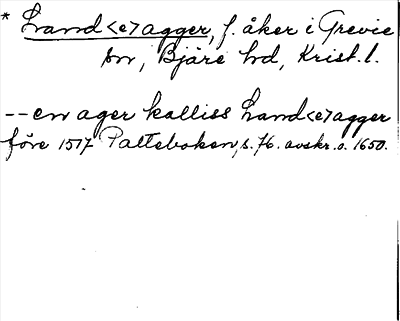 * Land<e>agger, f. åker i Grevie
sn, Bjäre hd, Krist. l.
-- en ager kalliss Land<e>agger
före 1517 Palteboken, s. 76. avskr. o. 1650.